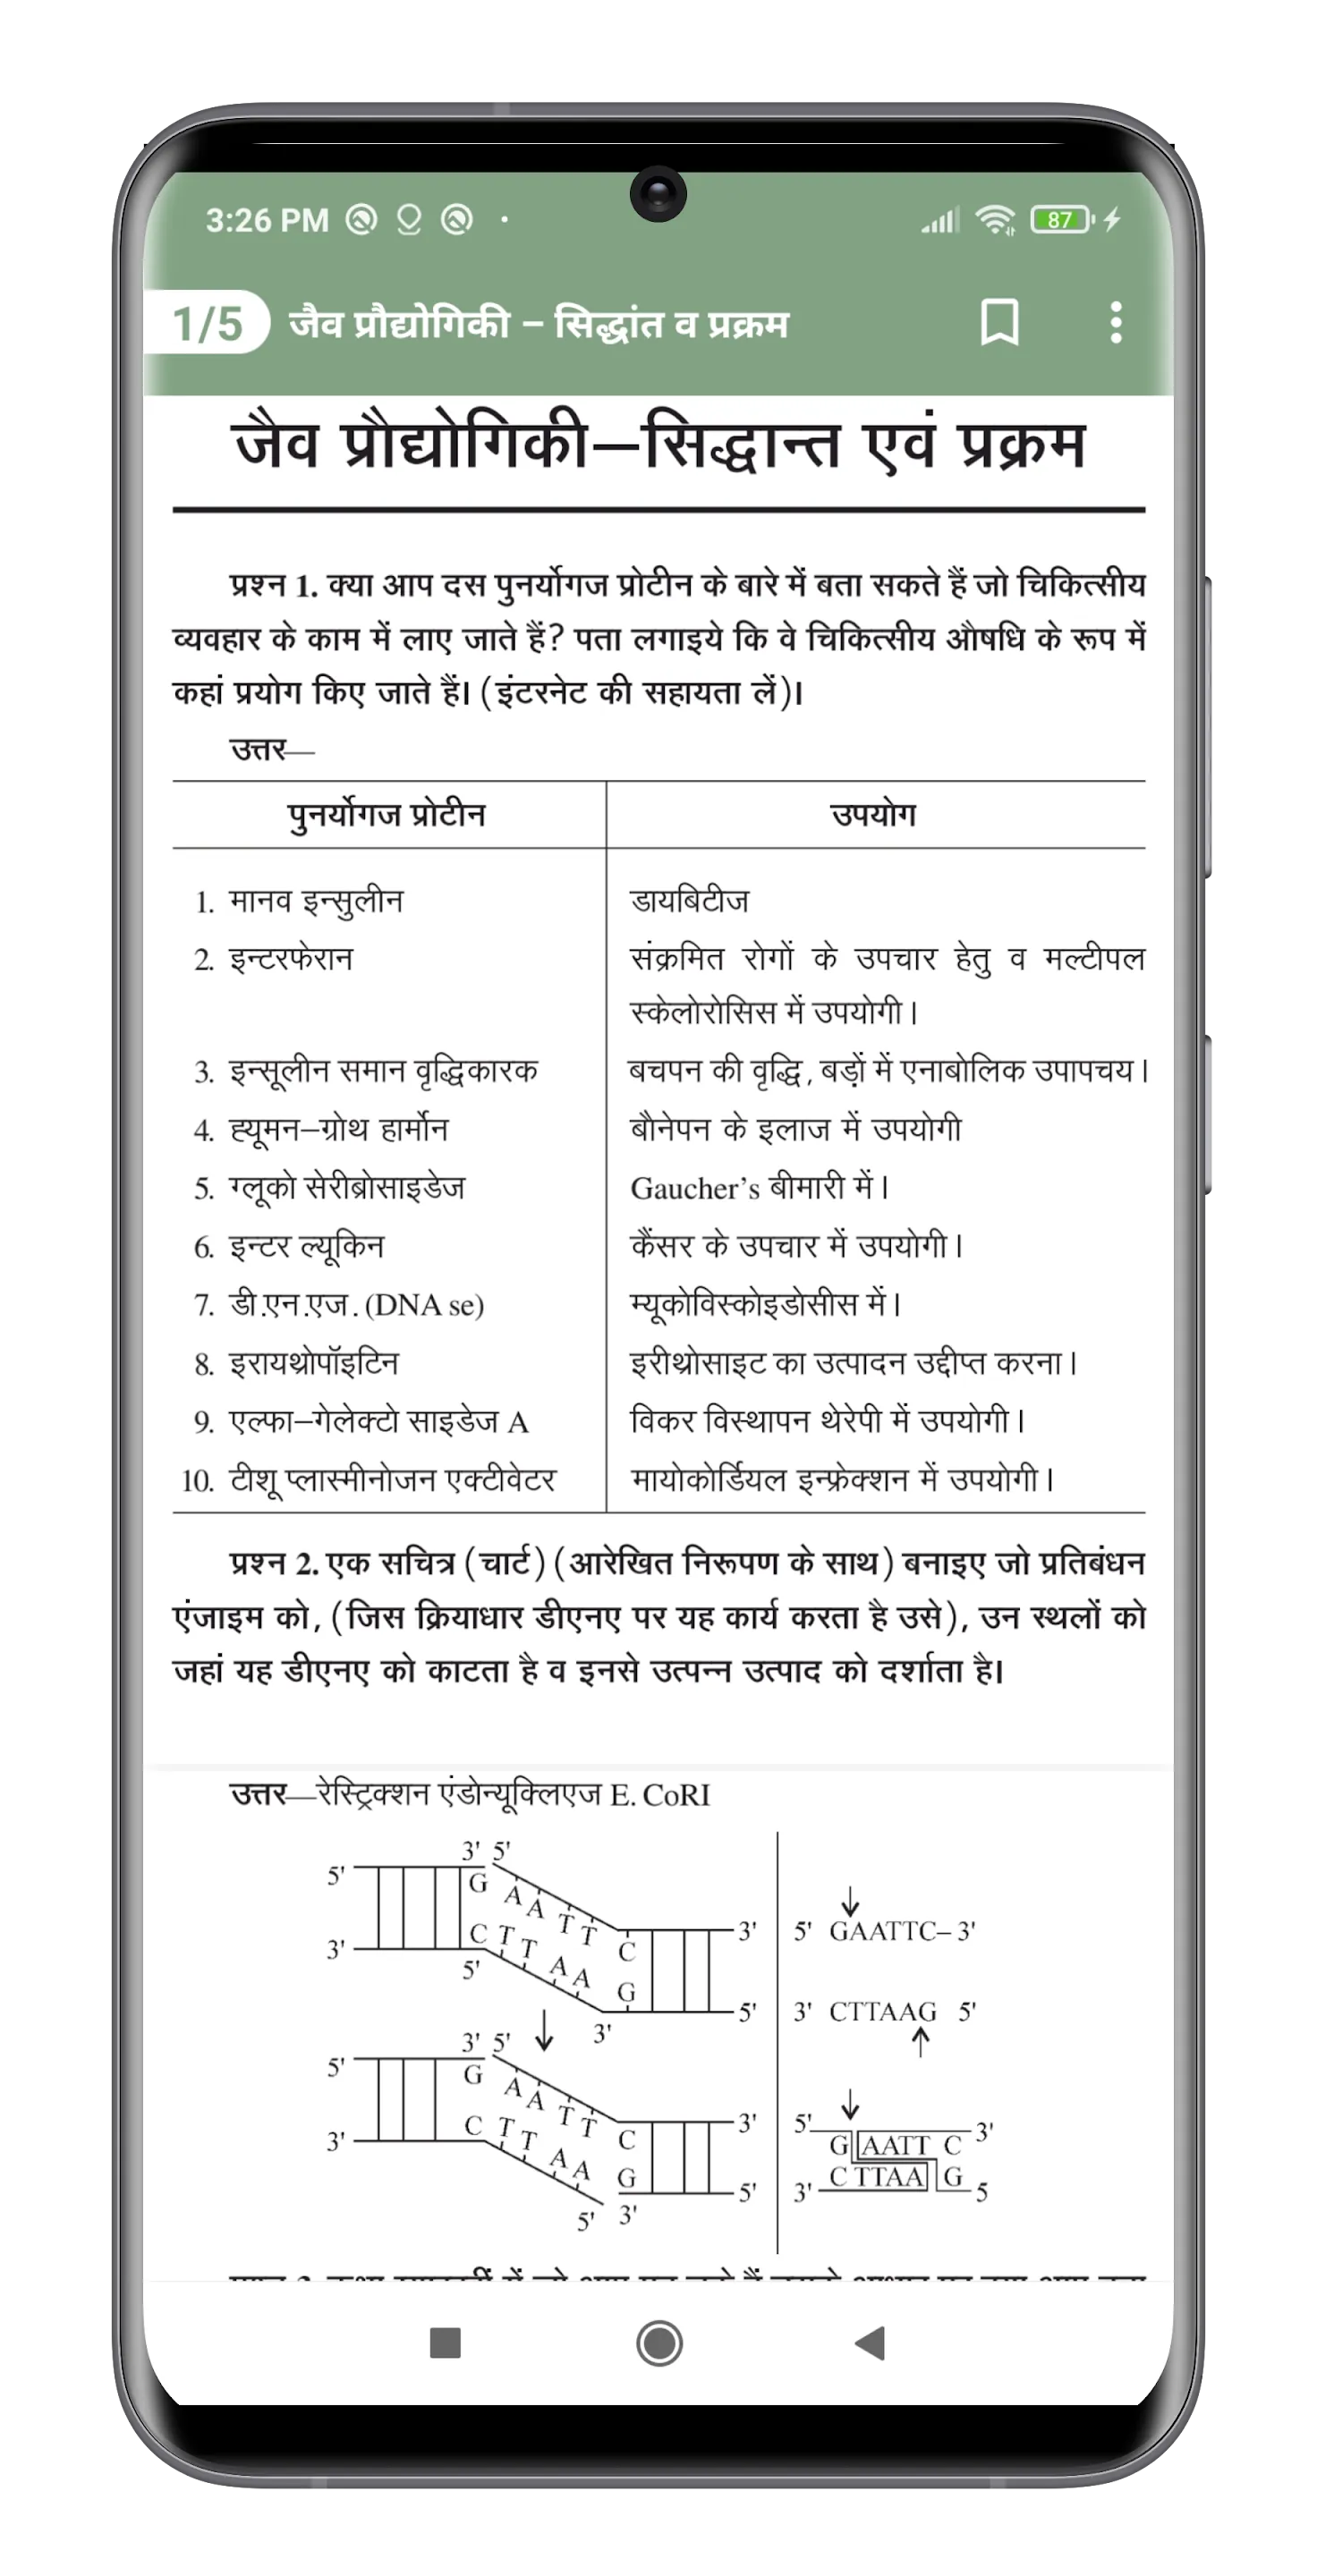 3:26 PM
87
1/5 जैव प्रौद्योगिकी – सिद्धांत व प्रक्रम
जैव प्रौद्योगिकी–सिद्धान्त एवं प्रक्रम
प्रश्न 1. क्या आप दस पुनर्योगज प्रोटीन के बारे में बता सकते हैं जो चिकित्सीय
व्यवहार के काम में लाए जाते हैं? पता लगाइये कि वे चिकित्सीय औषधि के रूप में
कहां प्रयोग किए जाते हैं। (इंटरनेट की सहायता लें)।
उत्तर—
पुनर्योगज प्रोटीन उपयोग
1. मानव इन्सुलीन डायबिटीज
2. इन्टरफेरान संक्रमित रोगों के उपचार हेतु व मल्टीपल
स्केलोरोसिस में उपयोगी।
3. इन्सूलीन समान वृद्धिकारक बचपन की वृद्धि, बड़ों में एनाबोलिक उपापचय।
4. ह्यूमन–ग्रोथ हार्मोन बौनेपन के इलाज में उपयोगी
5. ग्लूको सेरीब्रोसाइडेज Gaucher's बीमारी में।
6. इन्टर ल्यूकिन कैंसर के उपचार में उपयोगी।
7. डी.एन.एज. (DNA se) म्यूकोविस्कोइडोसीस में।
8. इरायथ्रोपॉइटिन इरीथ्रोसाइट का उत्पादन उद्दीप्त करना।
9. एल्फा–गेलेक्टो साइडेज A विकर विस्थापन थेरेपी में उपयोगी।
10. टीशू प्लास्मीनोजन एक्टीवेटर मायोकोर्डियल इन्फ्रेक्शन में उपयोगी।
प्रश्न 2. एक सचित्र (चार्ट) (आरेखित निरूपण के साथ) बनाइए जो प्रतिबंधन
एंजाइम को, (जिस क्रियाधार डीएनए पर यह कार्य करता है उसे), उन स्थलों को
जहां यह डीएनए को काटता है व इनसे उत्पन्न उत्पाद को दर्शाता है।
उत्तर—रेस्ट्रिक्शन एंडोन्यूक्लिएज E. CoRI
3' 5'
5' G A A T T C 3'
3' C T T A A G 5'
5' 3'
3' 5'
5' G A A T T C 3'
3' C T T A A G 5'
5' 3'
5' GAATTC– 3'
3' CTTAAG 5'
5' G AATT C 3'
3' C TTAA G 5